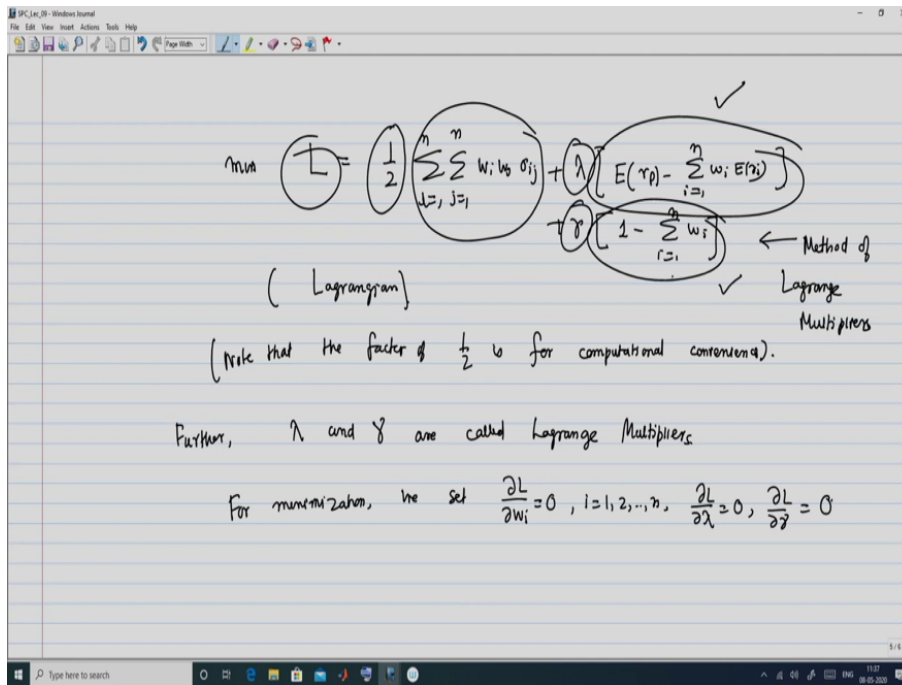 SPC_Lec_09 - Windows Journal
File Edit View Insert Actions Tools Help
Page Width
min L = 1/2 n∑i=1 n∑j=1 wi wj σij + λ [ E(rp) - n∑i=1 wi E(ri) ]
+ γ [ 1 - n∑i=1 wi ] ← Method of
Lagrange
Multipliers
( Lagrangian)
(Note that the factor of 1/2 is for computational convenience).
Further, λ and γ are called Lagrange Multipliers.
For minimization, we set ∂L/∂wi = 0 , i=1, 2, .., n, ∂L/∂λ = 0, ∂L/∂γ = 0
5/6
Type here to search
ENG
11:37
08-05-2020